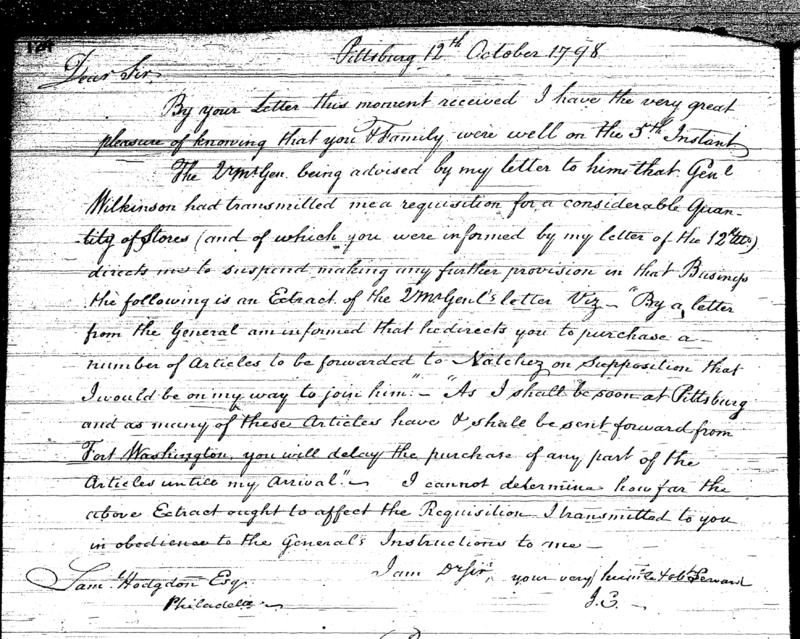 124
Pittsburg 12th October 1798
Dear Sir,
By your Letter this moment received I have the very great
pleasure of knowing that you & Family were well on the 5th Instant
The QrMrGen. being advised by my letter to him that Genl
Wilkinson had transmitted me a requisition for a considerable Quan-
tity of Stores (and of which you were informed by my letter of the 12th Ulto)
directs me to suspend making any further provision in that Business
the following is an Extract of the QrMrGenl's letter Viz - "By a letter
from the General am informed that he directs you to purchase a
number of Articles to be forwarded to Natchez on Supposition that
I would be on my way to join him." - "As I shall be soon at Pittsburg
and as many of these Articles have & shall be sent forward from
Fort Washington, you will delay the purchase of any part of the
Articles untill my arrival." - I cannot determine how far the
above Extract ought to affect the Requisition I transmitted to you
in obedience to the General's Instructions to me -
I am Dr Sir, your very humle & obt Servant
Saml Hodgdon Esq.
Philadela